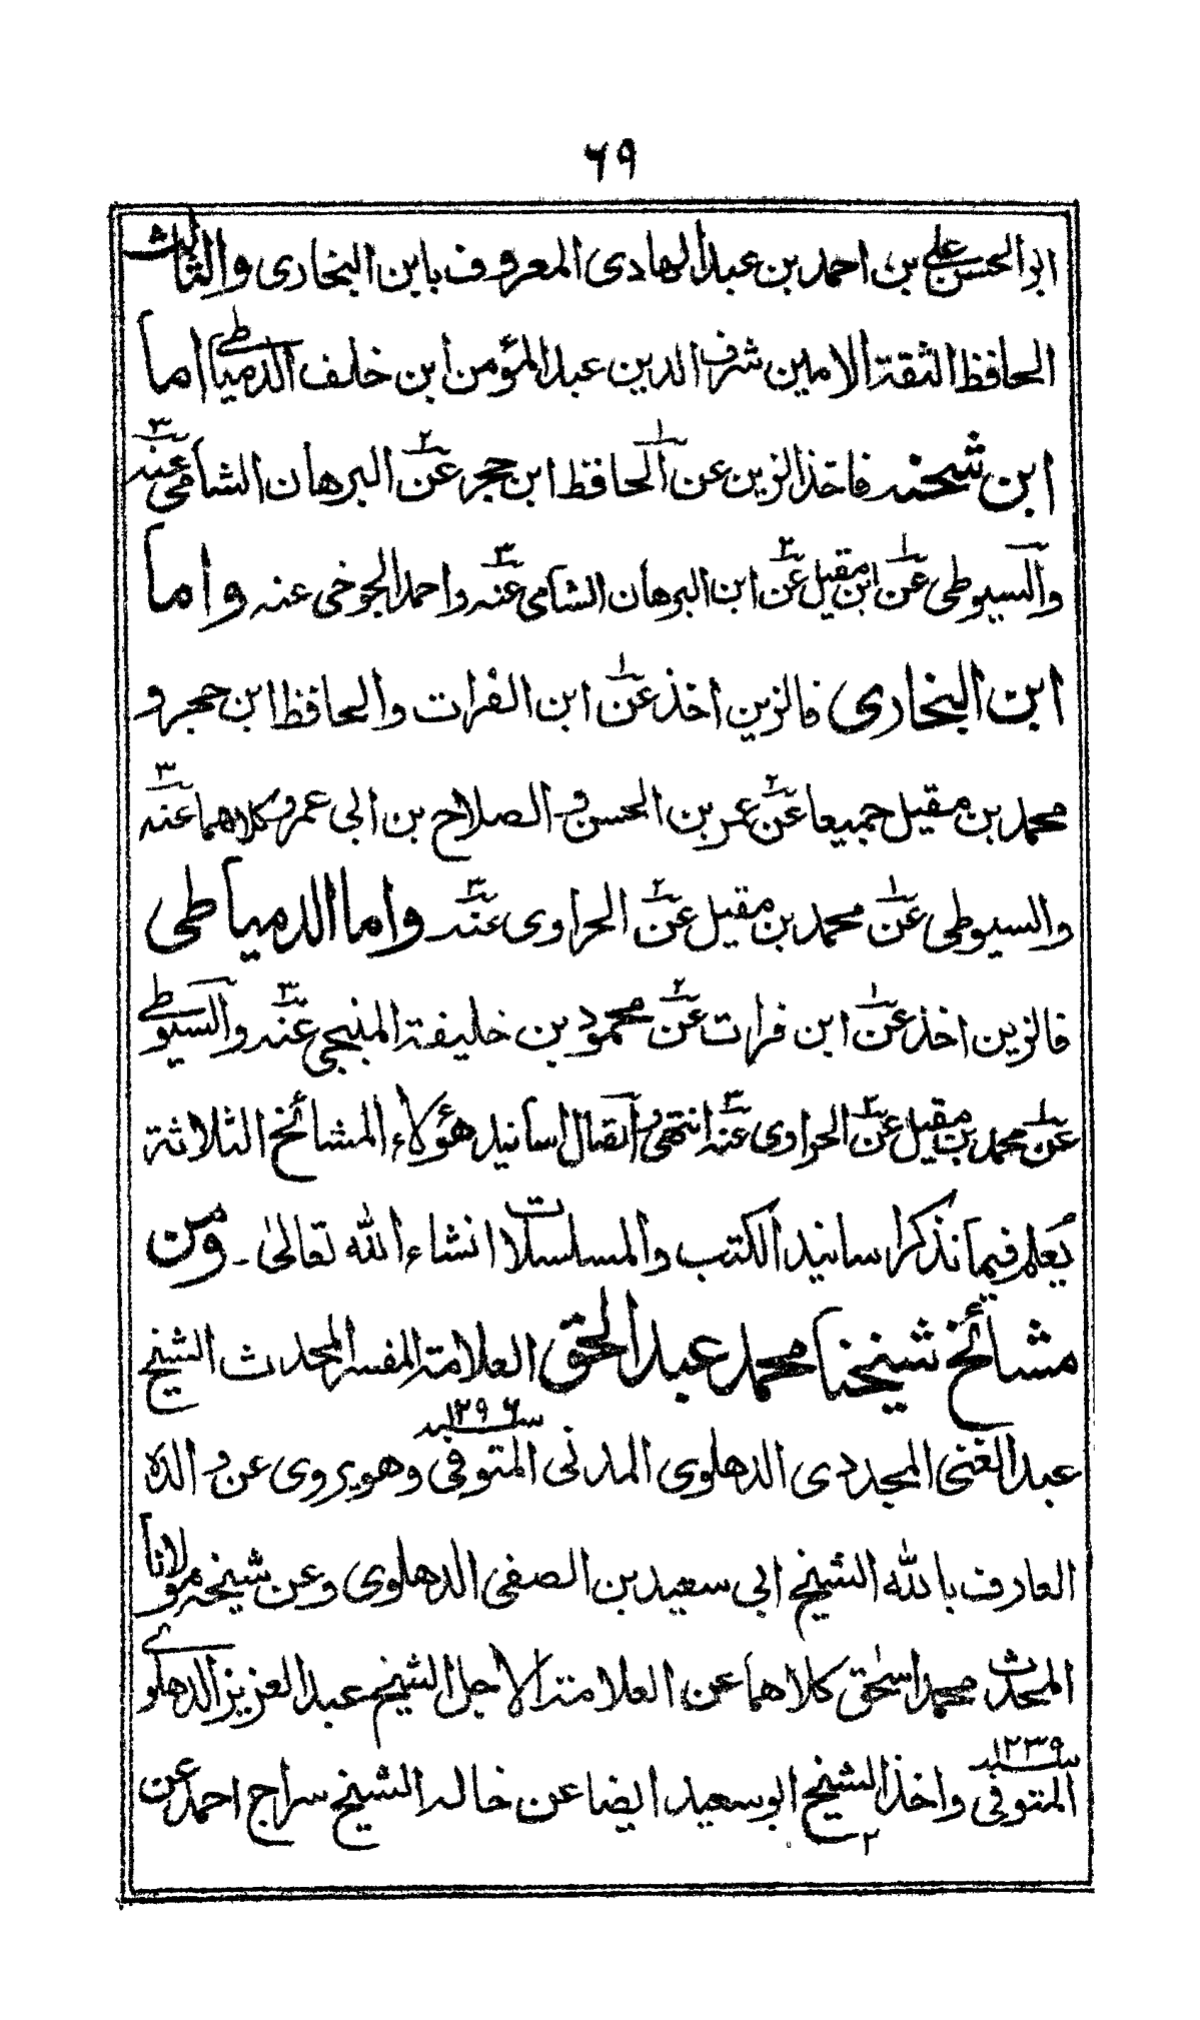 ٦٩
ابو الحسن علي بن احمد بن عبد الهادى المعروف بابن البخارى والثالث
الحافظ الثقة الامين شرف الدين عبد المؤمن ابن خلف الدمياطي اما
ابن شحنه فاخذ الزين عن ١ الحافظ ابن حجر عن ٢ البرهان الشامى عنه ٣
والسيوطى عن ١ ابن مقبل عن ٢ ابن البرهان الشامى عنه ٣ واحمد الجوخى عنه واما
ابن البخارى فالزين اخذ عن ١ ابن الفرات والحافظ ابن حجر و
محمد بن مقبل جميعا عن ٢ عمر بن الحسن و الصلاح بن ابى عمرو كلاهما عنه ٣
والسيوطى عن ١ محمد بن مقبل عن ٢ الحراوى عنه ٣ واما الدمياطى
فالزين اخذ عن ١ ابن فرات عن ٢ محمود بن خليفة المنبجى عنه ٣ والسيوطي
عن ١ محمد بن مقبل عن ٢ الحراوى عنه ٣ انتهى و اتصال اسانيد هؤلاء المشائخ الثلاثة
يعلم فيما نذكر اسانيد الكتب والمسلسلات انشاء الله تعالىٰ - ومن
مشائخ شيخنا محمد عبد الحق العلامة المفسر المحدث الشيخ
عبد الغنى المجددى الدهلوى المدنى المتوفى سنه ١٢٩٦ وهو يروى عن والده
العارف بالله الشيخ ابى سعيد بن الصفى الدهلوى وعن شيخه مولانا
المحدث محمد اسحٰق كلاهما عن العلامة الاجل الشيخ عبد العزيز الدهلوي
المتوفى سنه ١٢٣٩ واخذ الشيخ ابو سعيد ايضا عن خاله الشيخ سراج احمد عن
٢